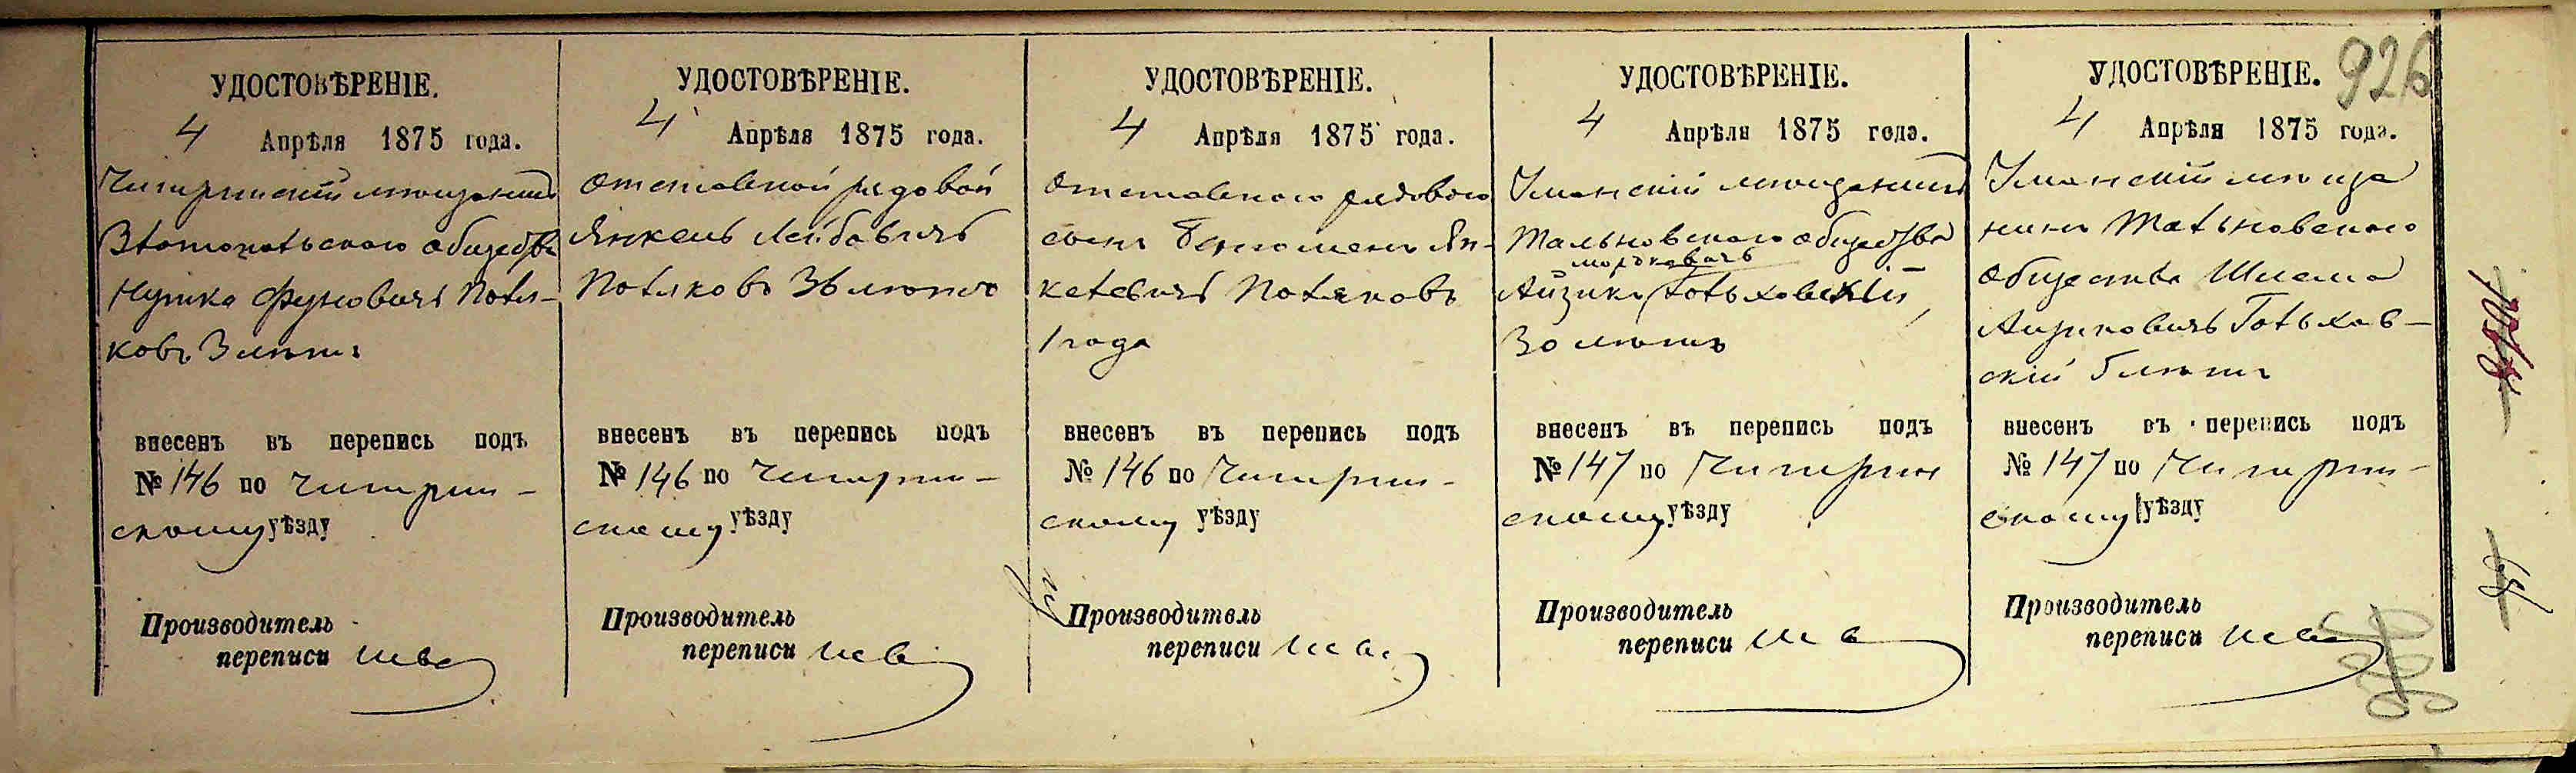 926
УДОСТОВѢРЕНІЕ.
4 Апрѣля 1875 года.
Чигиринскій мѣщанинъ
Златопольскаго общества
Поля-
ковъ 3 лѣтъ
внесенъ въ перепись подъ
№ 146 по Чигирин-
скому уѣзду
Производитель
переписи
УДОСТОВѢРЕНІЕ.
4 Апрѣля 1875 года.
Отставной рядовой
Янкель Лейбовичъ
Поляковъ лѣтъ
внесенъ въ перепись подъ
№ 146 по Чигирин-
скому уѣзду
Производитель
переписи
УДОСТОВѢРЕНІЕ.
4 Апрѣля 1875 года.
Отставного рядового
сынъ Ян-
келевичъ Поляковъ
1 года
внесенъ въ перепись подъ
№ 146 по Чигирин-
скому уѣзду
Производитель
переписи
УДОСТОВѢРЕНІЕ.
4 Апрѣля 1875 года.
Уманскій мѣщанинъ
Тальновского общества
Мордковичъ
Айзикъ Гольховскій
30 лѣтъ
внесенъ въ перепись подъ
№ 147 по Чигирин
скому уѣзду
Производитель
переписи
УДОСТОВѢРЕНІЕ.
4 Апрѣля 1875 года.
Уманскій мѣща
нинъ Тальновского
общества Шлема
Айзиковичъ Гольхов-
скій 5 лѣтъ
внесенъ въ перепись подъ
№ 147 по Чигирин-
скому уѣзду
Производитель
переписи